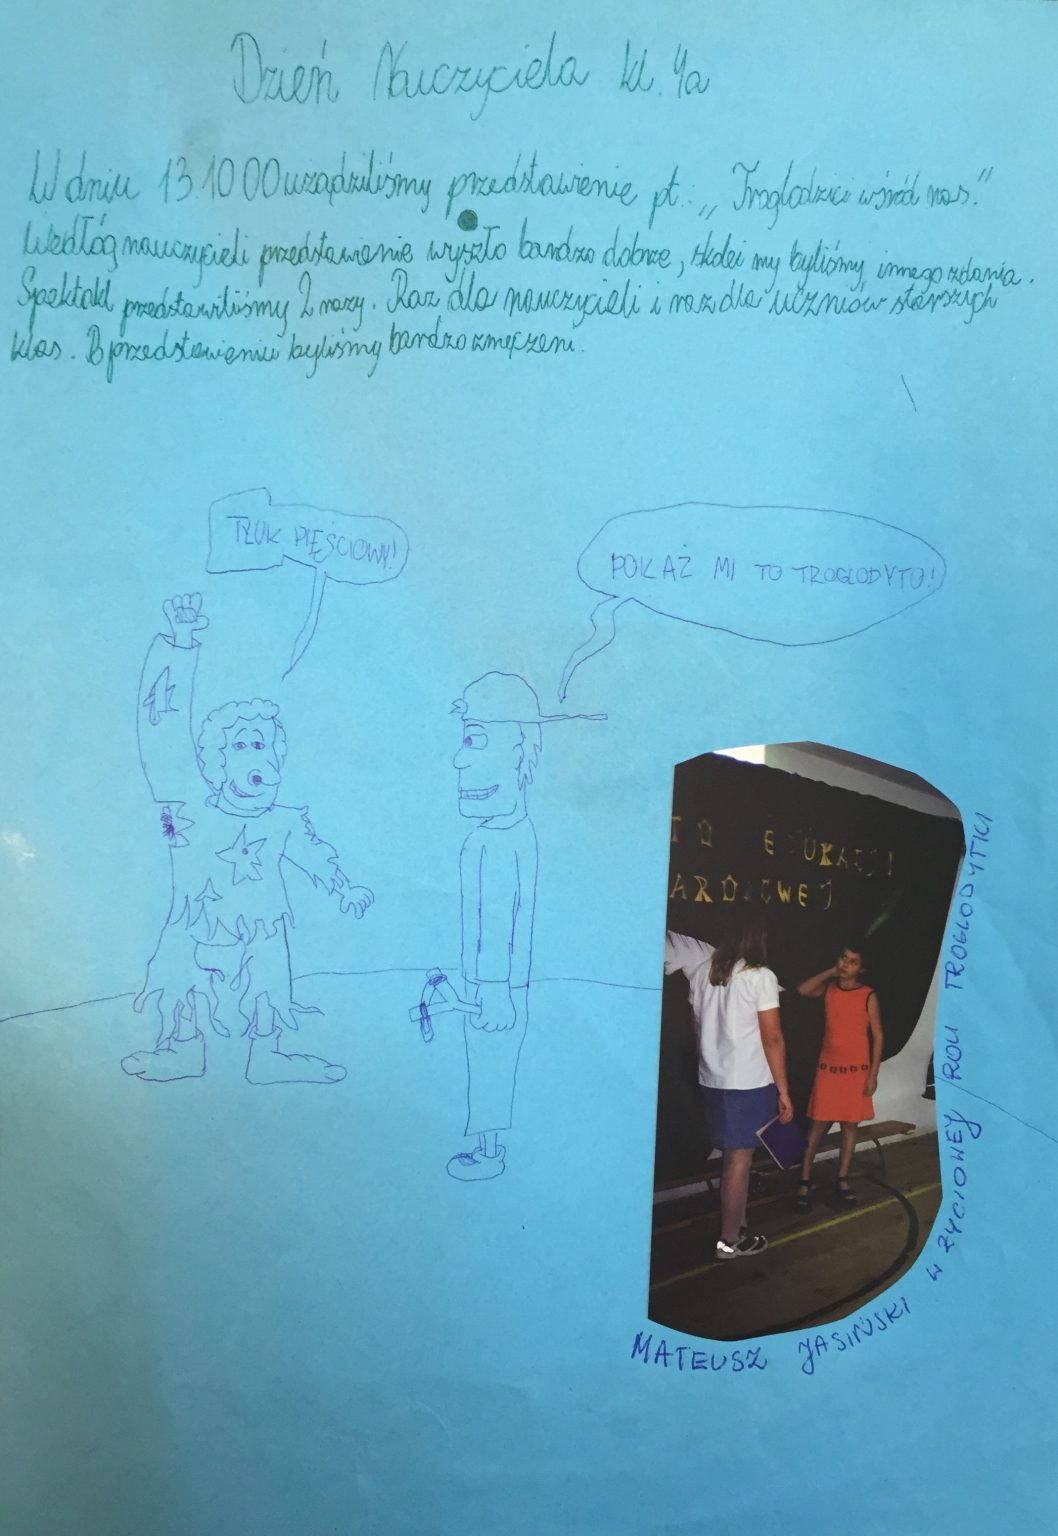 Dzień Nauczyciela kl. 4a
W dniu 13.10 00 urządziliśmy przedstawienie pt.: „Troglodzici wśród nas."
Wedłóg nauczycieli przedstawienie wyszło bardzo dobrze, zkolei my byliśmy innego zdania.
Spektakl przedstawiliśmy 2 razy. Raz dla nauczycieli i raz dla uczniów starszych
klas. Po przedstawieniu byliśmy bardzo zmęczeni.
TŁUK PIĘŚCIOWY!
POKAŻ MI TO TROGLODYTO!
TO EDUKACJI
ARODOWEJ
MATEUSZ JASIŃSKI W ŻYCIOWEJ ROLI TROGLODYTKI